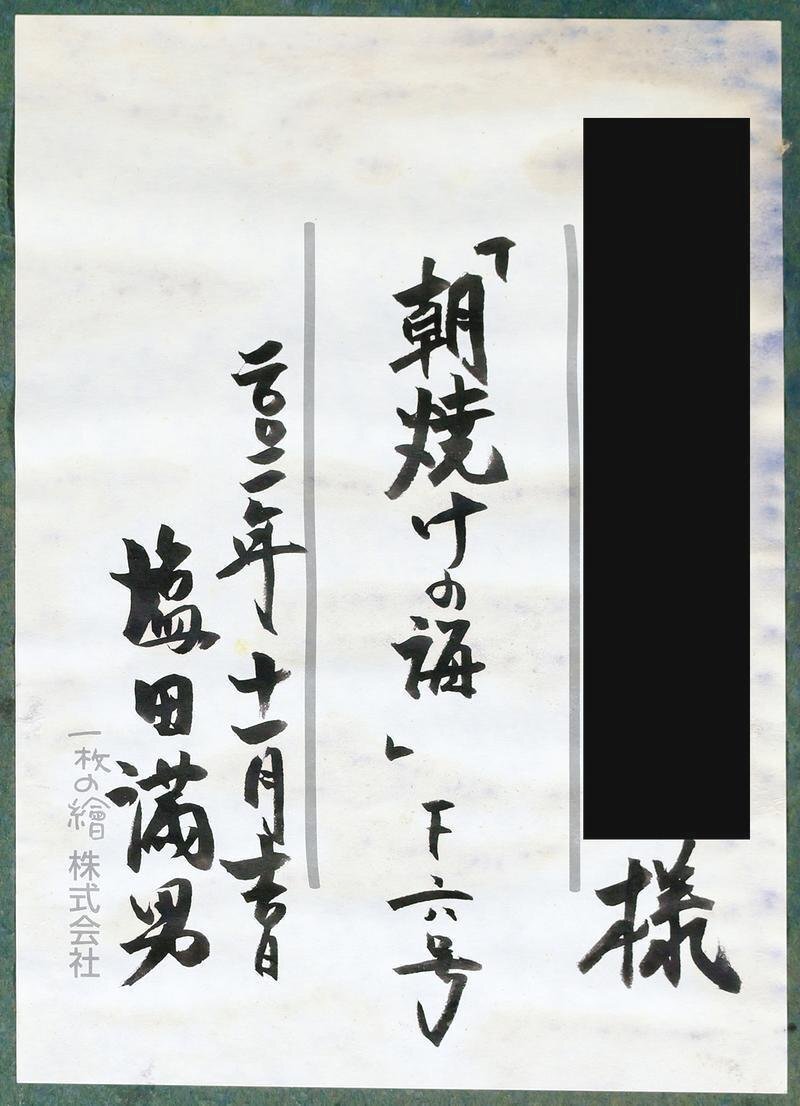 様
「朝焼けの海」 F六号
二〇〇二年十一月吉日
塩田満男
一枚の繪 株式会社